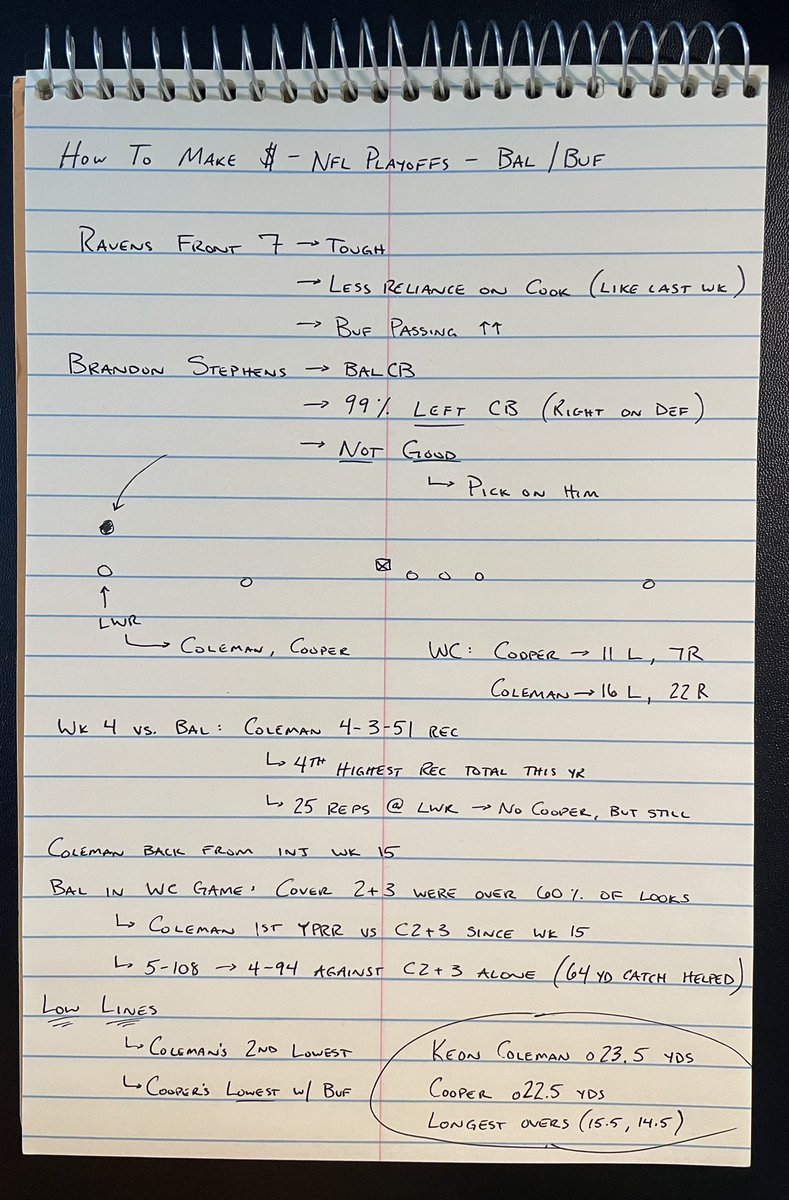 HOW TO MAKE $ - NFL PLAYOFFS - BAL / BUF
RAVENS FRONT 7 → TOUGH
→ LESS RELIANCE ON COOK (LIKE LAST WK)
→ BUF PASSING ↑↑
BRANDON STEPHENS → BAL CB
→ 99% LEFT CB (RIGHT ON DEF)
→ NOT GOOD
↳ PICK ON HIM
LWR
↳ COLEMAN, COOPER
WC: COOPER → 11 L, 7R
COLEMAN → 16 L, 22 R
WK 4 VS. BAL: COLEMAN 4-3-51 REC
↳ 4TH HIGHEST REC TOTAL THIS YR
↳ 25 REPS @ LWR → NO COOPER, BUT STILL
COLEMAN BACK FROM INJ WK 15
BAL IN WC GAME: COVER 2+3 WERE OVER 60% OF LOOKS
↳ COLEMAN 1ST YPRR VS C2+3 SINCE WK 15
↳ 5-108 → 4-94 AGAINST C2+3 ALONE (64 YD CATCH HELPED)
LOW LINES
↳ COLEMAN'S 2ND LOWEST
↳ COOPER'S LOWEST W/ BUF
KEON COLEMAN o23.5 YDS
COOPER o22.5 YDS
LONGEST OVERS (15.5, 14.5)